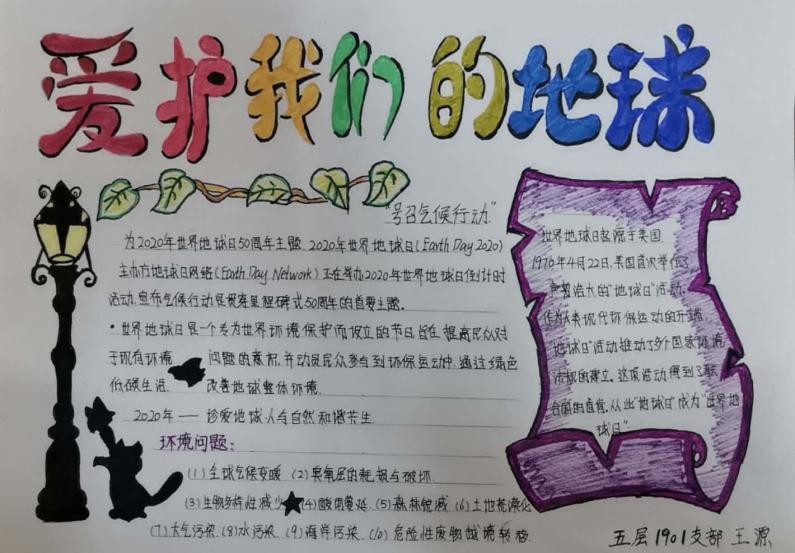 爱护我们的地球
"号召气候行动"
为2020年世界地球日50周年主题. 2020年世界地球日(Earth Day 2020)
主办方地球日网络(Earth Day Network)正在举办2020年世界地球日倒计时
活动,宣布气候行动是最具里程碑式50周年的首要主题.
·世界地球日是一个专为世界环境保护而设立的节日,旨在提高民众对
于现有环境问题的意识,并动员民众参与到环保运动中,通过绿色
低碳生活,改善地球整体环境.
2020年——珍爱地球人与自然和谐共生.
环境问题:
(1)全球气候变暖 (2)臭氧层的耗损与破坏.
(3)生物多样性减少 (4)酸雨蔓延. (5)森林锐减 (6)土地荒漠化
(7)大气污染 (8)水污染. (9)海洋污染. (10)危险性废物越境转移.
世界地球日起源于美国.
1970年4月22日,美国首次举行了
声势浩大的"地球日"活动.
作为人类现代环保运动的开端,
"地球日"活动推动了多个国家环境
法规的建立。这项活动得到了联
合国的首肯.从此"地球日"成为"世界地
球日"
五层1901支部 王源